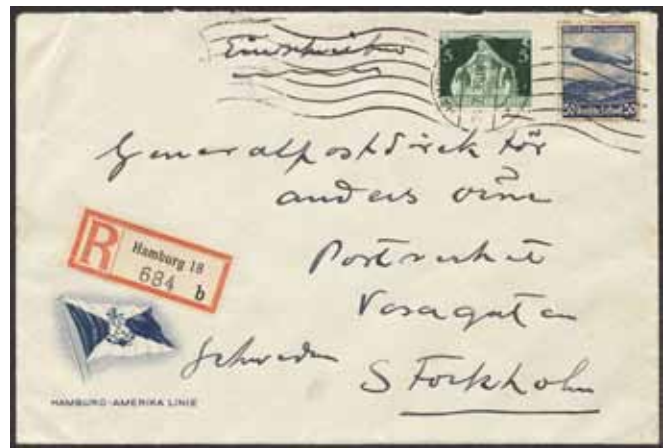 Einschreiben
5 5
50 50
Generalpostdirektör
Anders Örne
Postverket
Vasagatan
Schweden
Stockholm
R Hamburg 18
684 b
HAMBURG-AMERIKA LINIE